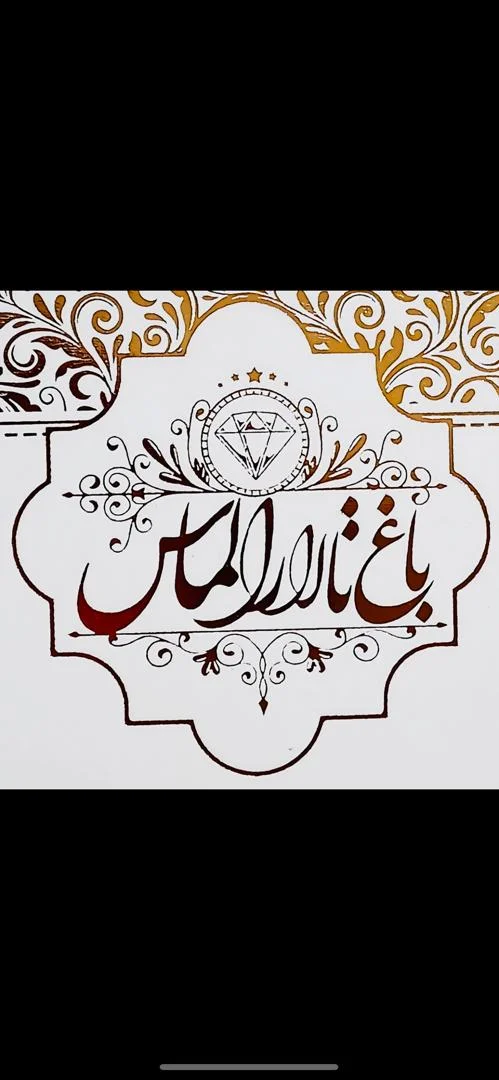 باغ تالار الماس